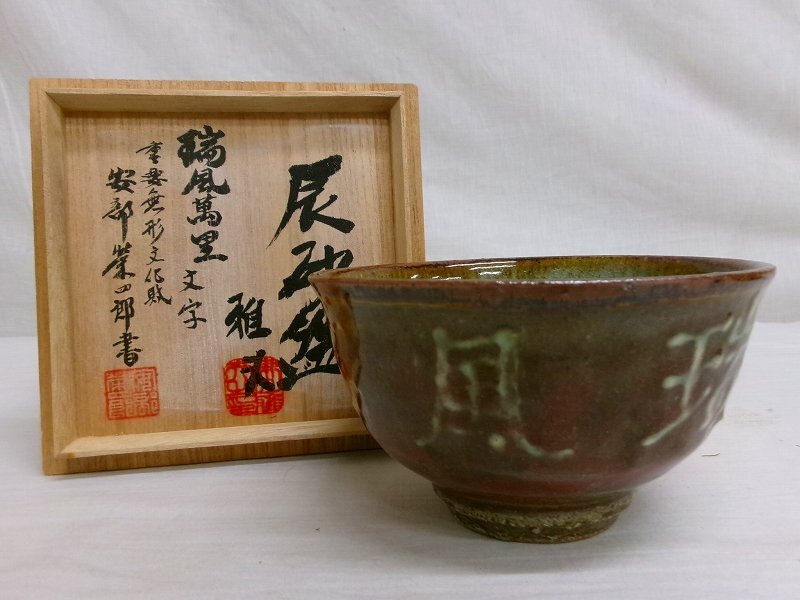 辰砂盌
雅夫
瑞風萬里 文字
重要無形文化財
安部榮四郎書
風 瑞